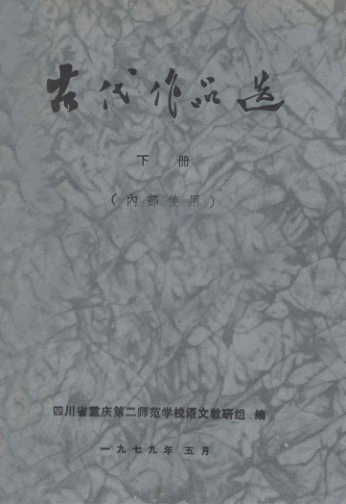 古代作品选
下册
（内部使用）
四川省重庆第二师范学校语文教研组 编
一九七九年 五月